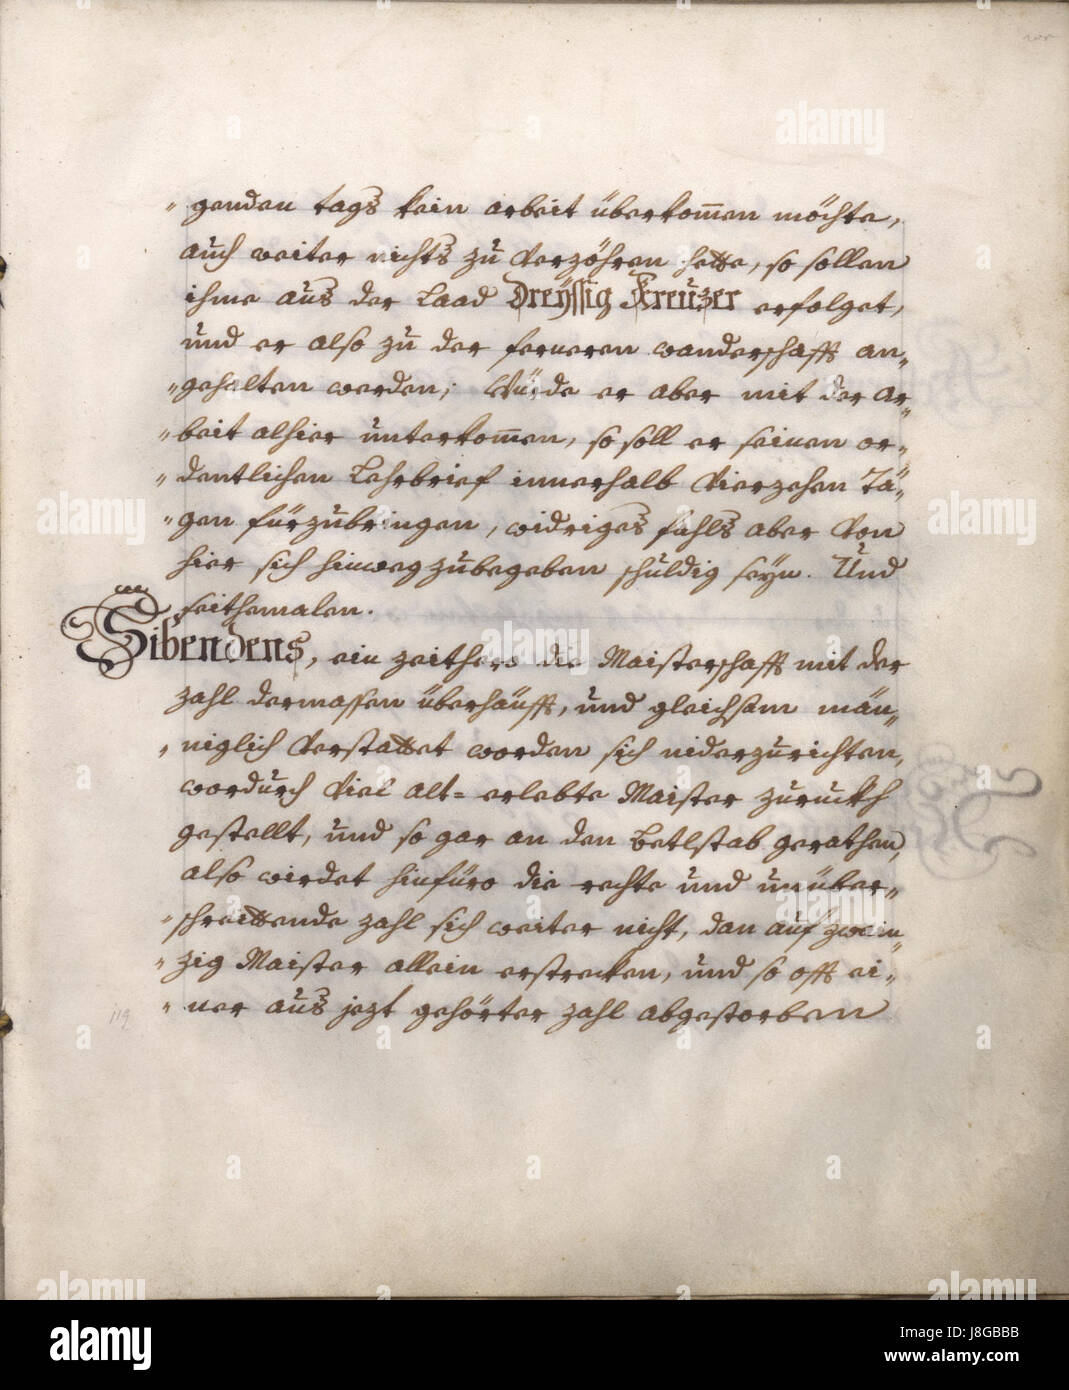 genden tags kein arbeit überkom̄en möchte,
auch weiter nichts zu Verzöhren hette, so sollen
ihme aus der Laad Dreÿssig Kreuzer erfolget,
und er also zu der ferneren wanderschafft an-
gehalten werden; Würde er aber mit der Ar-
beit alhier unterkom̄en, so soll er seinen or-
dentlichen Lehrbrief innerhalb Vierzehen Tä-
gen fürzubringen, widriges fahls aber Von
hier sich hinweg zubegeben schuldig seÿn. Und
seithemalen.
Sibendens, ein zeithero die Maisterschafft mit der
zahl dermassen überhäufft, und gleichsam män-
niglich Verstattet worden sich niderzurichten,
wordurch Viel alt= erlebte Maister zuruckh
gestellt, und so gar an den Betlstab gerathen,
also wirdet hinfüro die rechte und unüber-
schreittende zahl sich weiter nicht, dan auf zwein-
zig Maister allein erstrecken, und so offt ei-
ner aus jezt gehörter zahl abgestorben
119
alamy
Image ID: J8GBBB
www.alamy.com